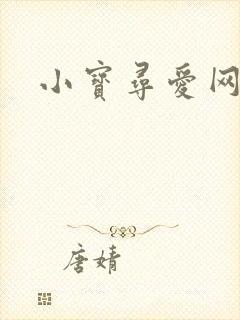 小寶尋愛网
唐婧